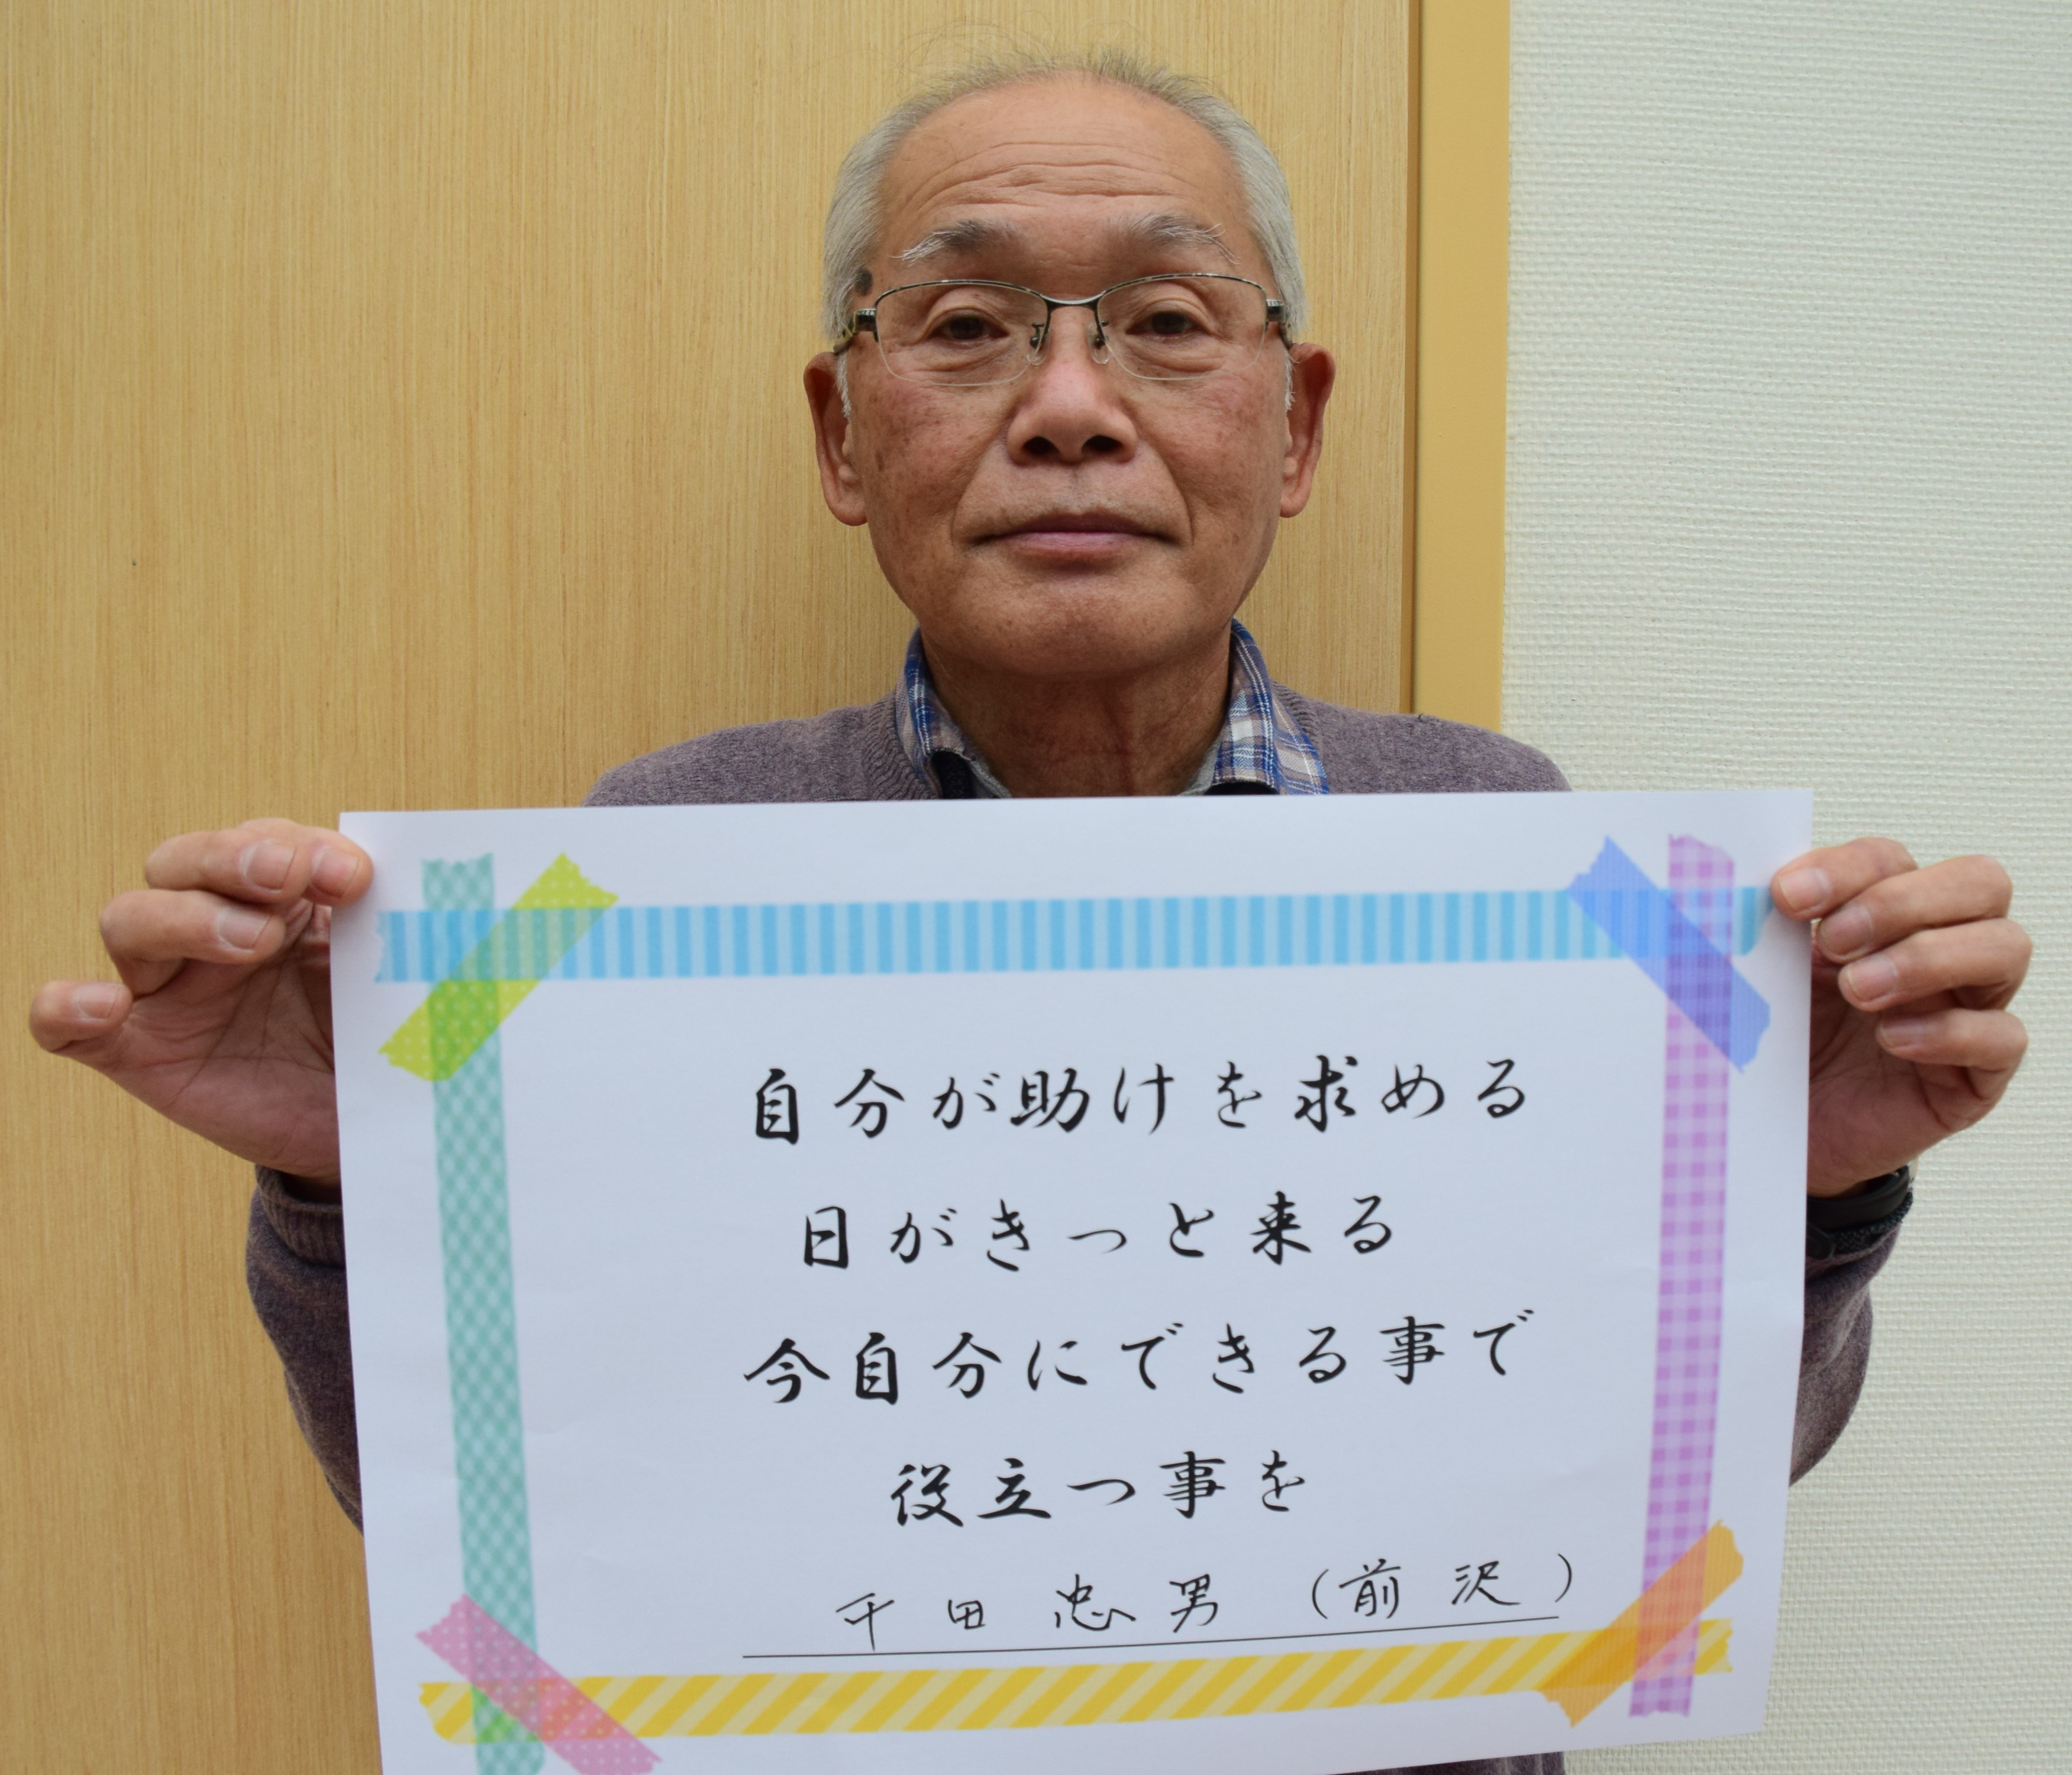 自分が助けを求める
日がきっと来る
今自分にできる事で
役立つ事を
千田 忠男 (前沢)